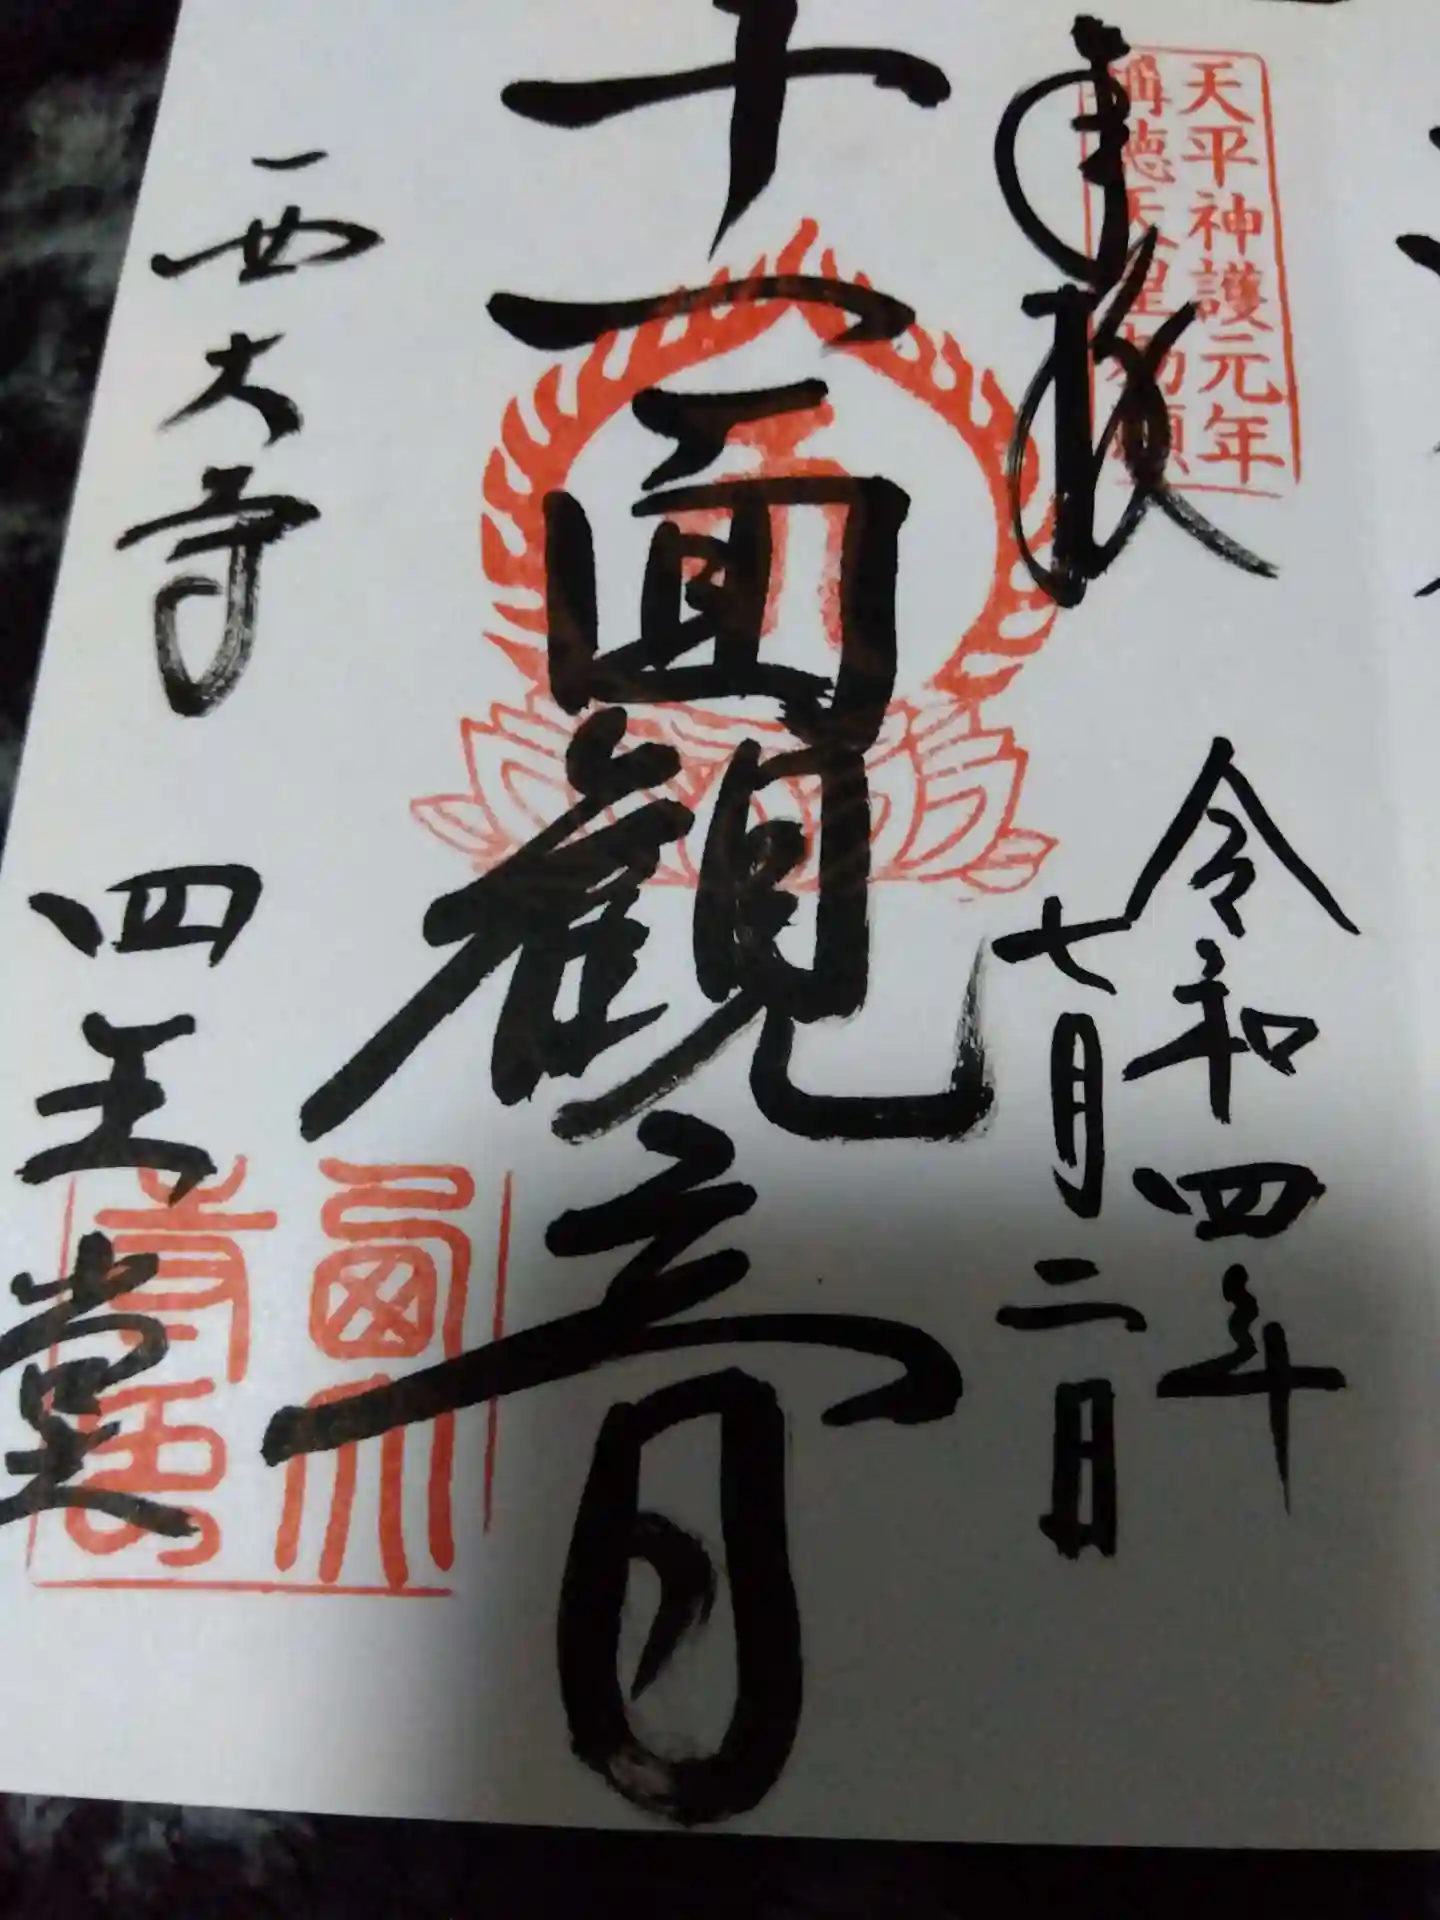 天平神護元年
稱德天皇勅願
奉拝
令和四年
七月二日
十一面観音
西大寺
四王堂